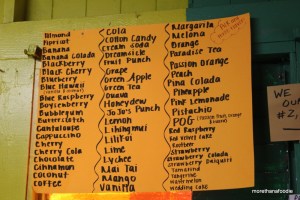 Almond
Apricot
Banana
Banana Colada
Blackberry
Black Cherry
Blueberry
Blue Hawaii
Blue Raspberry
Boysenberry
Bubblegum
Buttercotch
Cantaloupe
Cappuccino
Cherry
Cherry Cola
Chocolate
Cinnamon
Coconut
Coffee
Cola
Cotton Candy
Cream Soda
Dreamsicle
Fruit Punch
Grape
Green Apple
Green Tea
Guava
Honeydew
JoJo's Punch
Lemon
Lihingmui
Lilikoi
Lime
Lychee
Mai Tai
Mango
Vanilla
Margarita
Melona
Orange
Paradise Tea
Passion Orange
Peach
Pina Colada
Pineapple
Pink Lemonade
Pistachio
POG (Passion fruit, orange, guava)
Red Raspberry
Red Velvet Cake
Rootbeer
Strawberry
Strawberry Colada
Strawberry Daiquiri
Tamarind
Tangerine
Watermelon
Wedding Cake
WE
OU
#2,
morethanafoodie